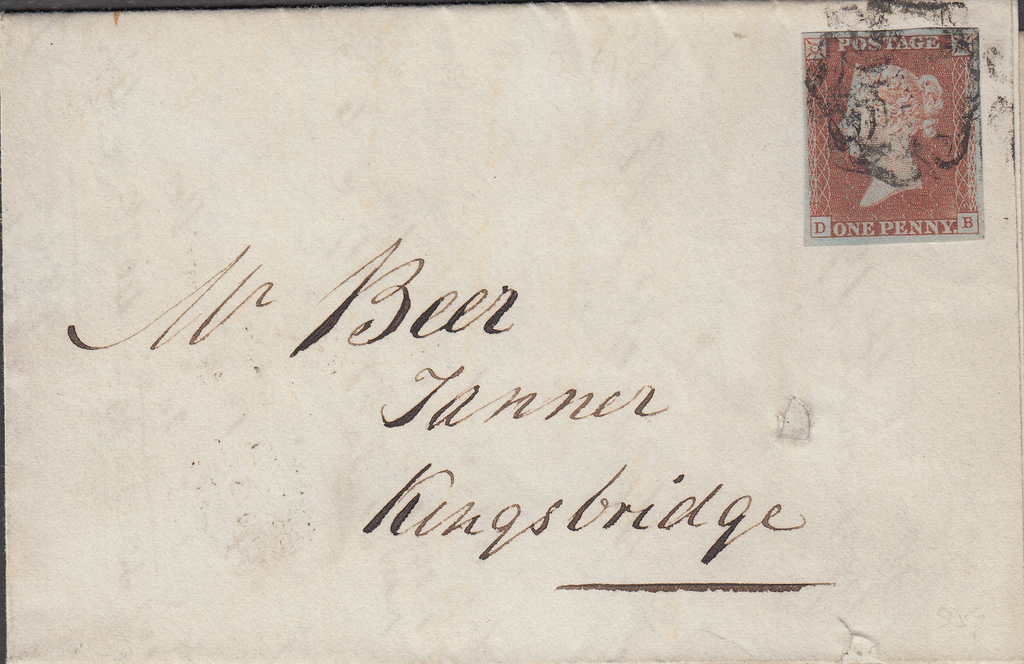 POSTAGE
D ONE PENNY. B
Mr Beer
Tanner
Kingsbridge